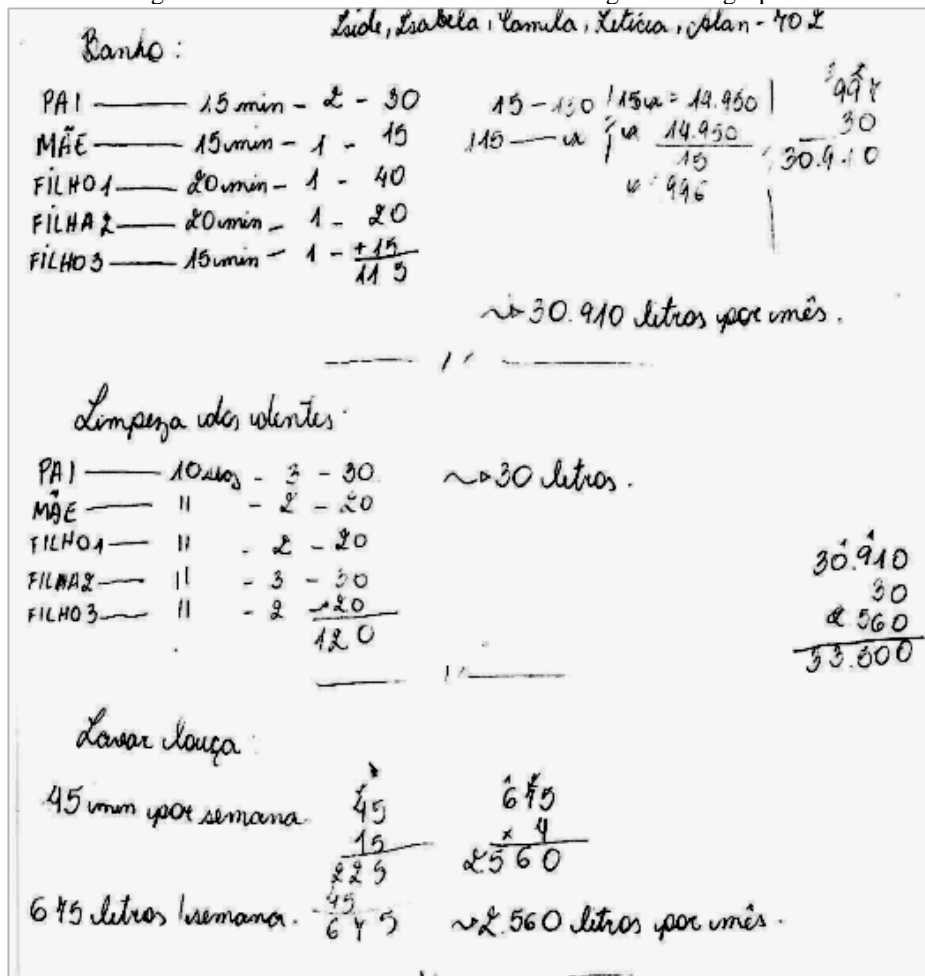 Lside, Isabela, Camila, Letícia, Alan - 702
Banho:
PAI — 15 min - 2 - 30
MÃE — 15 min - 1 - 15
FILHO 1 — 20 min - 1 - 40
FILHA 2 — 20 min - 1 - 20
FILHO 3 — 15 min - 1 - +15
115
15 - 130
115 — x
15x = 14.950
x 14.950
15
x = 996
997
30
30.910
30.910 litros por mês.
Limpeza dos dentes:
PAI — 10 - 3 - 30
MÃE — 11 - 2 - 20
FILHO 1 — 11 - 2 - 20
FILHA 2 — 11 - 3 - 30
FILHO 3 — 11 - 2 20
120
30 litros.
30.910
30
2 560
33.500
Lavar louça:
45 min por semana
45
15
225
45
675
675
x 4
2560
675 litros / semana.
2.560 litros por mês.